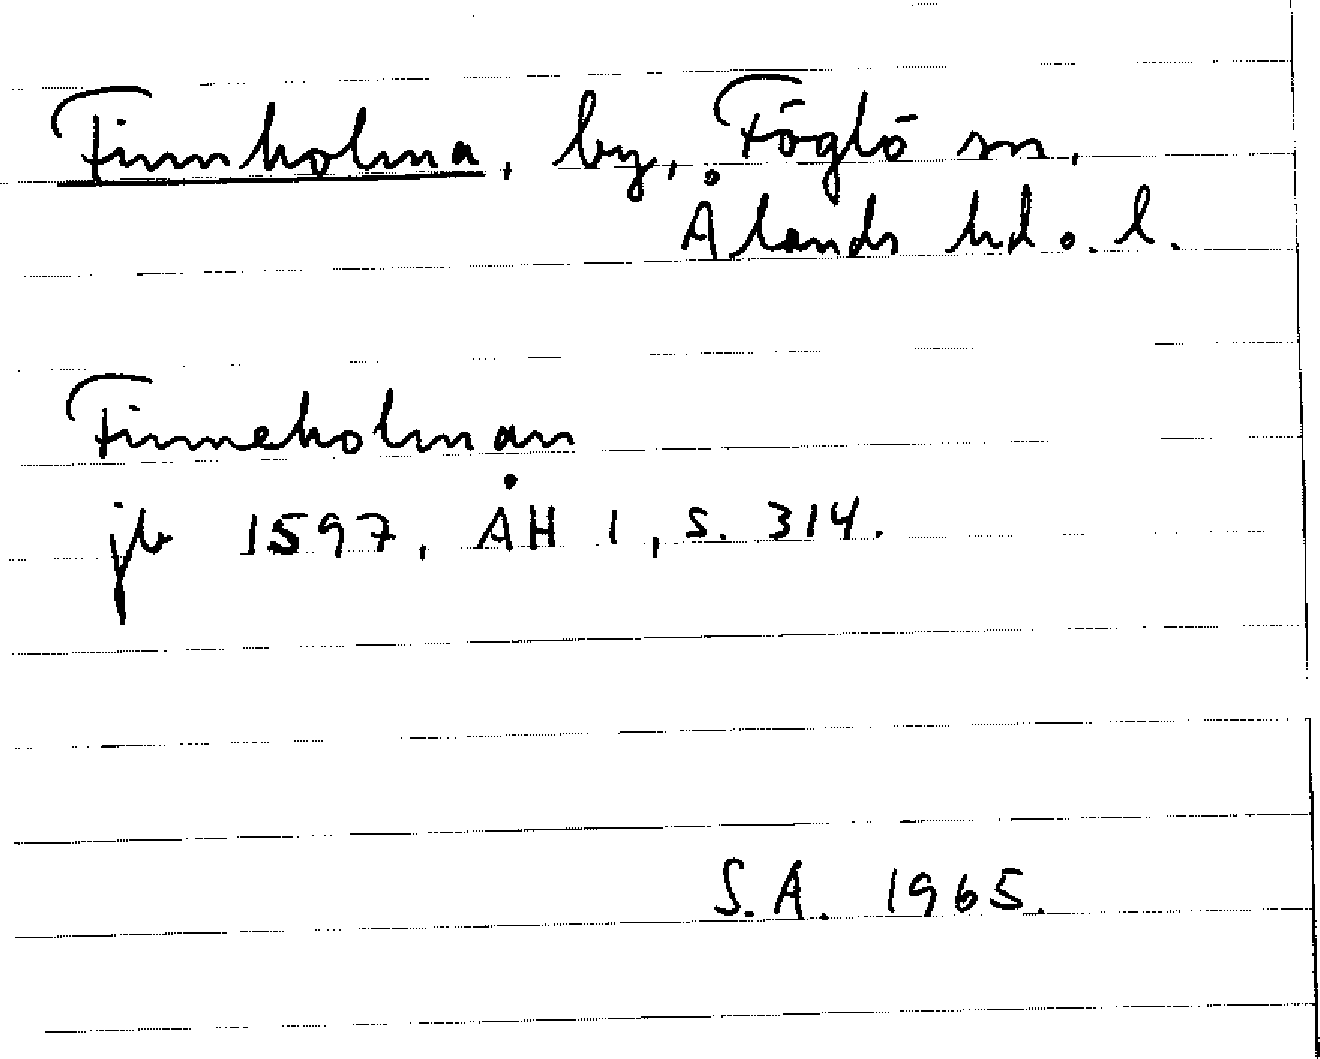 Finnholma, by, Föglö sn,
Ålands hd o. l.
Finneholman
jb 1597, ÅH 1, s. 314.
S.A. 1965.